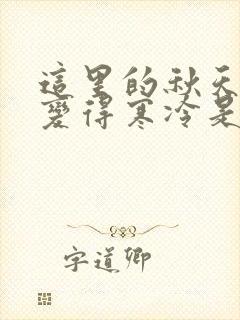 這里的秋天
變得寒冷是
字道卿